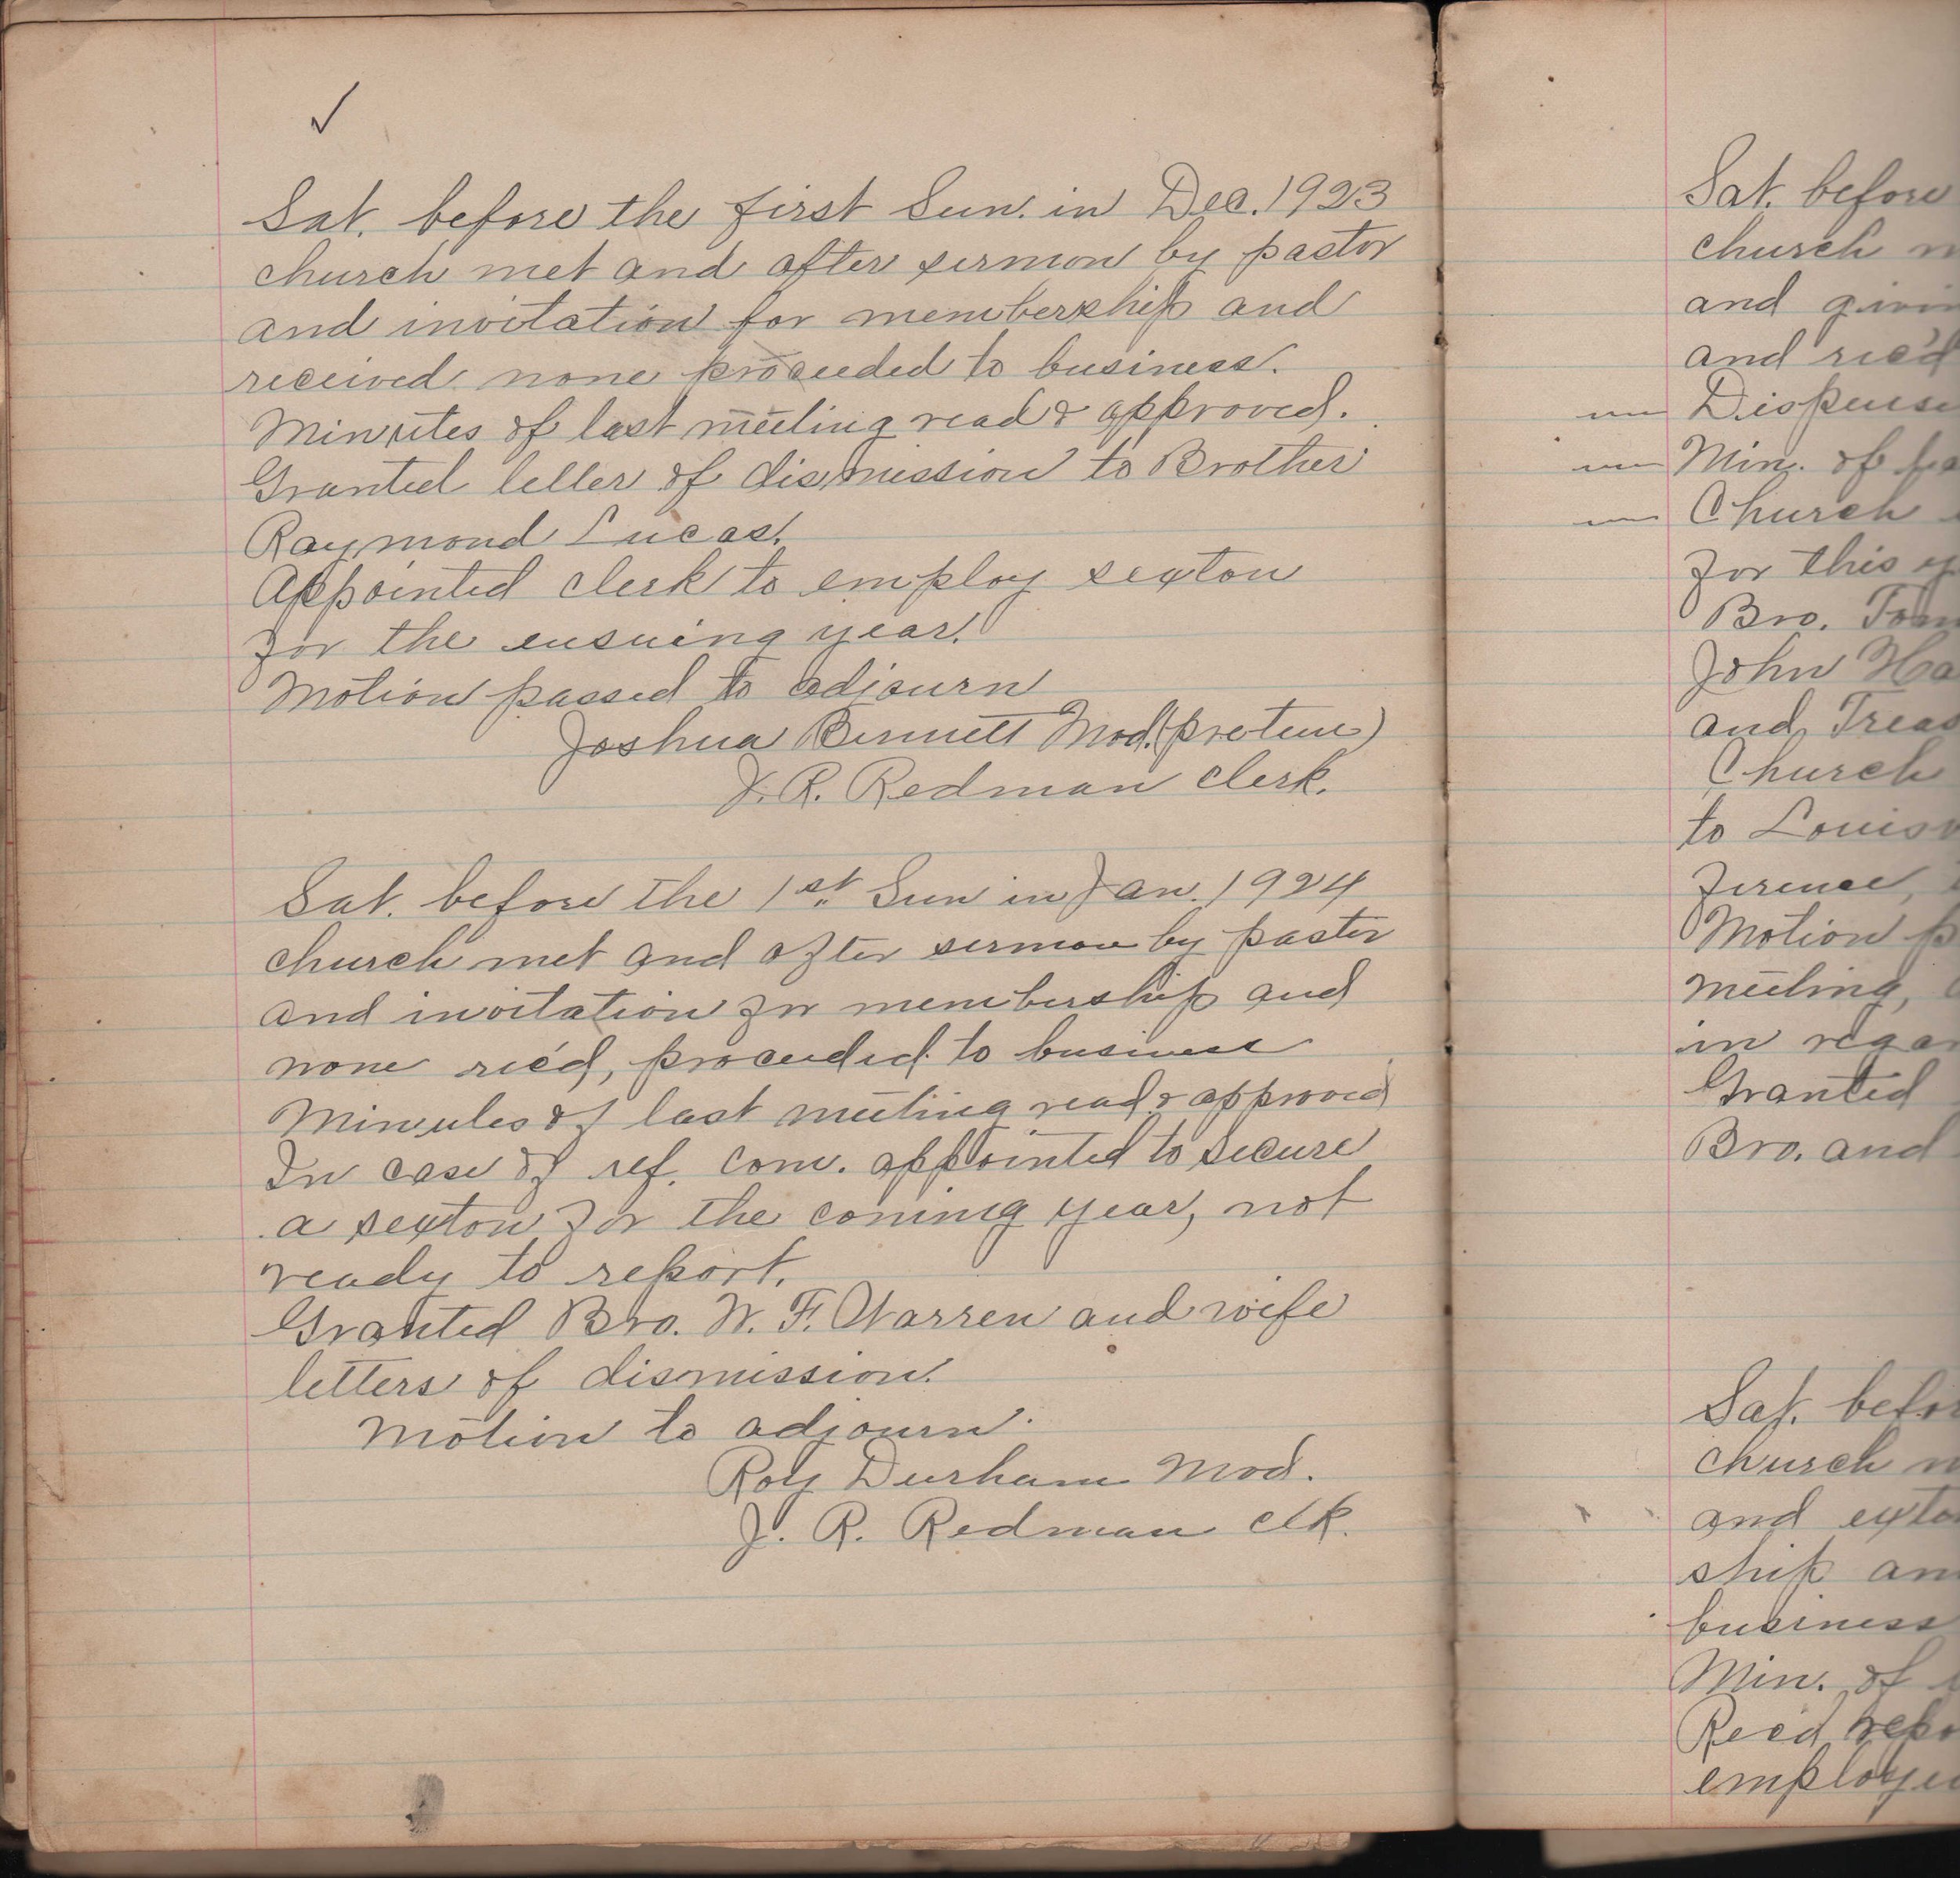 ✓
Sat. before the first Sun. in Dec. 1923
church met and after sermon by pastor
and invitation for membership and
received none proceeded to business.
Minutes of last meeting read & approved.
Granted letter of dismission to Brother
Raymond Lucas.
Appointed clerk to employ sexton
for the ensuing year.
Motion passed to adjourn
Joshua Bennett Mod. (protem)
J. R. Redman clerk.
Sat. before the 1st Sun in Jan. 1924
church met and after sermon by pastor
and invitation for membership and
none rec'd, proceeded to business
Minutes of last meeting read & approved
In case of ref. com. appointed to secure
a sexton for the coming year, not
ready to report.
Granted Bro. W. F. Warren and wife
letters of dismission.
Motion to adjourn.
Roy Durham Mod.
J. R. Redman clk.
Sat. before
church
and
and rec'd
Min. of
Church
for this
Bro.
John
and Treas
Church
to
Motion
meeting,
in
Granted
Bro. and
Sat.
church
and
ship
business
Min. of